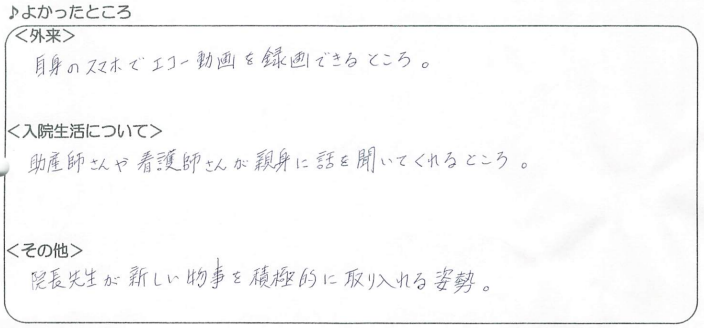 ♪よかったところ
＜外来＞
自身のスマホでエコー動画を録画できるところ。
＜入院生活について＞
助産師さんや看護師さんが親身に話を聞いてくれるところ。
＜その他＞
院長先生が新しい物事を積極的に取り入れる姿勢。